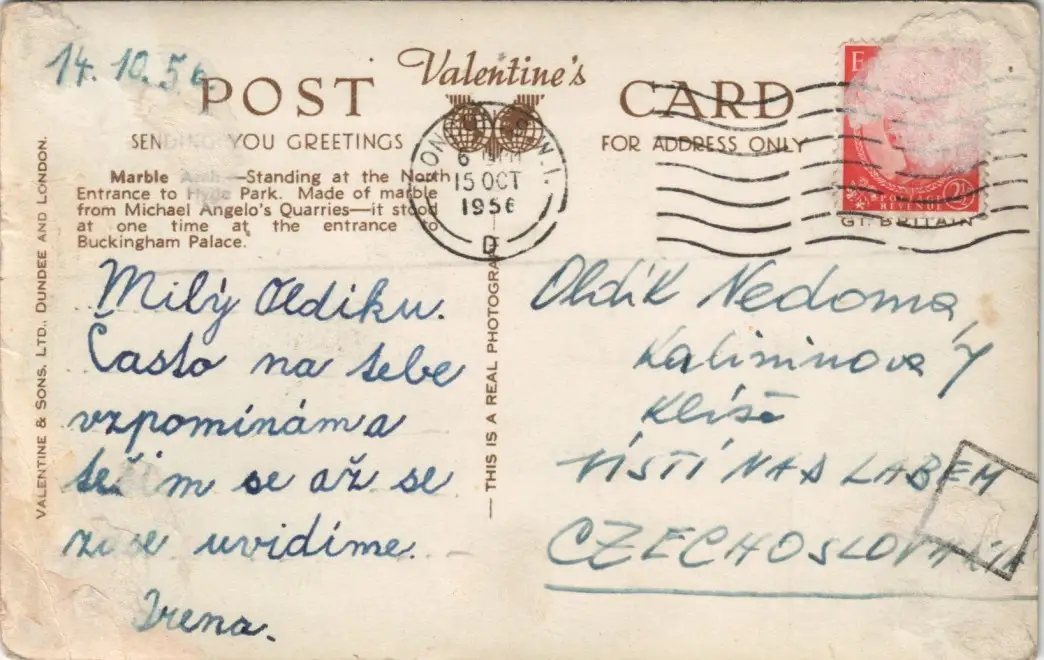 14. 10. 56
Valentine's
POST CARD
SENDING YOU GREETINGS
FOR ADDRESS ONLY
Marble Arch.—Standing at the North
Entrance to Hyde Park. Made of marble
from Michael Angelo's Quarries—it stood
at one time at the entrance to
Buckingham Palace.
VALENTINE & SONS, LTD., DUNDEE AND LONDON.
— THIS IS A REAL PHOTOGRAPH
LONDON N.I.
6 PM
15 OCT
1956
D
E
POSTAGE
REVENUE
2½
GT. BRITAIN
Milý Oldíku.
Často na tebe
vzpomínám a
těším se až se
zase uvidíme.
Irena.
Oldík Nedoma,
Kalininova
Klíše
ÚSTÍ NAD LABEM
CZECHOSLOVAKIA